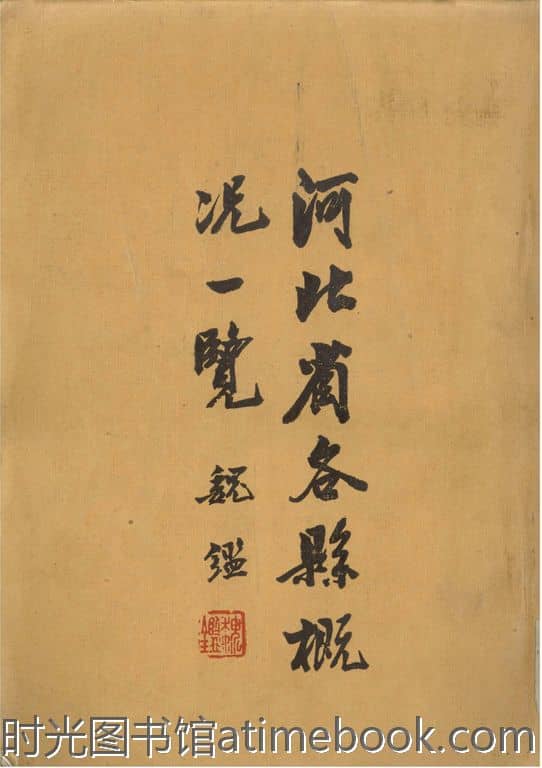 河北省各縣概
况一覽
魏鑑
魏鑑
时光图书馆atimebook.com